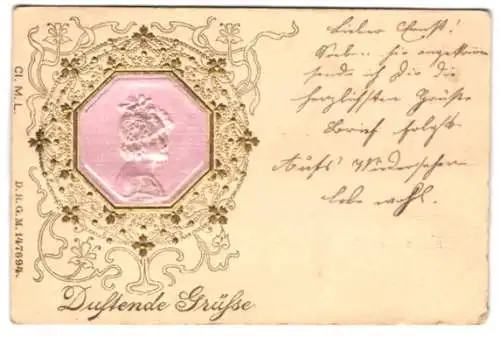 Cl. M. L.
D. R. G. M. 147694.
Duftende Grüsse
Lieber Ernst!
Soeben hier angekommen
sende ich Dir die
herzlichsten Grüsse
Brief folgt.
Aufs Wiedersehen
lebe wohl.